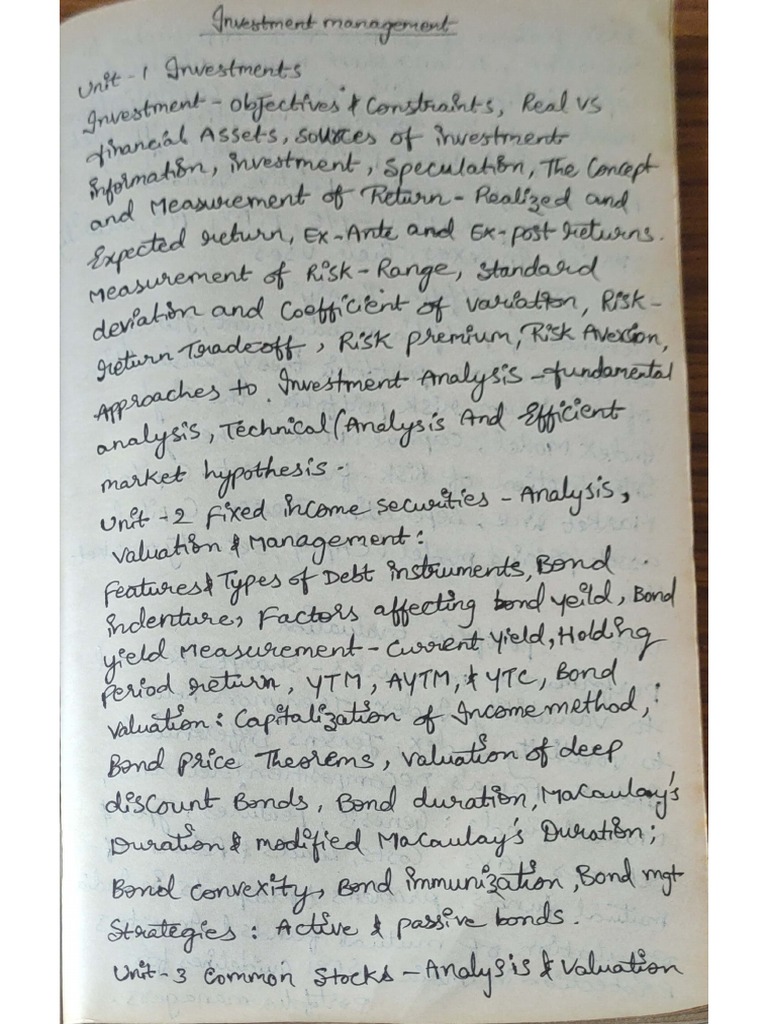 Investment management
Unit-1 Investments
Investment - objectives & Constraints, Real vs
financial Assets, sources of investment
information, investment, Speculation, The Concept
and Measurement of Return - Realized and
Expected return, Ex-Ante and Ex-post returns.
Measurement of Risk - Range, standard
deviation and Coefficient of variation, Risk-
return Tradeoff, Risk premium, Risk Aversion,
Approaches to Investment Analysis - fundamental
analysis, Technical (Analysis And Efficient
market hypothesis.
Unit-2 fixed income securities - Analysis,
valuation & Management:
features & Types of Debt instruments, Bond
indenture, Factors affecting bond yeild, Bond
yield Measurement - Current yield, Holding
Period return, YTM, AYTM, & YTC, Bond
valuation: Capitalization of Income method,
Bond price Theorems, valuation of deep
discount Bonds, Bond duration, Macaulay's
Duration & modified Macaulay's Duration;
Bond convexity, Bond immunization, Bond mgt
Strategies: Active & passive bonds.
Unit-3 Common Stocks - Analysis & Valuation